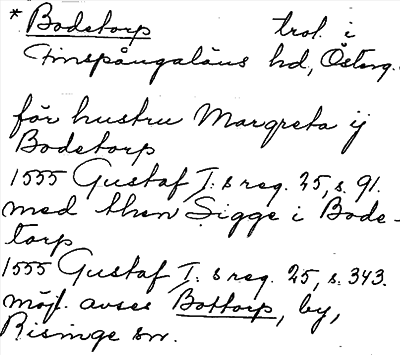 * Bodetorp trol. i
Finspångaläns hd, Österg.
för hustru Margreta ij
Bodetorp
1555 Gustaf I:s reg. 25, s. 91.
med then Sigge i Bode-
torp
1555 Gustaf I:s reg. 25, s. 343.
möjl. avses Bottorp, by,
Risinge sn.